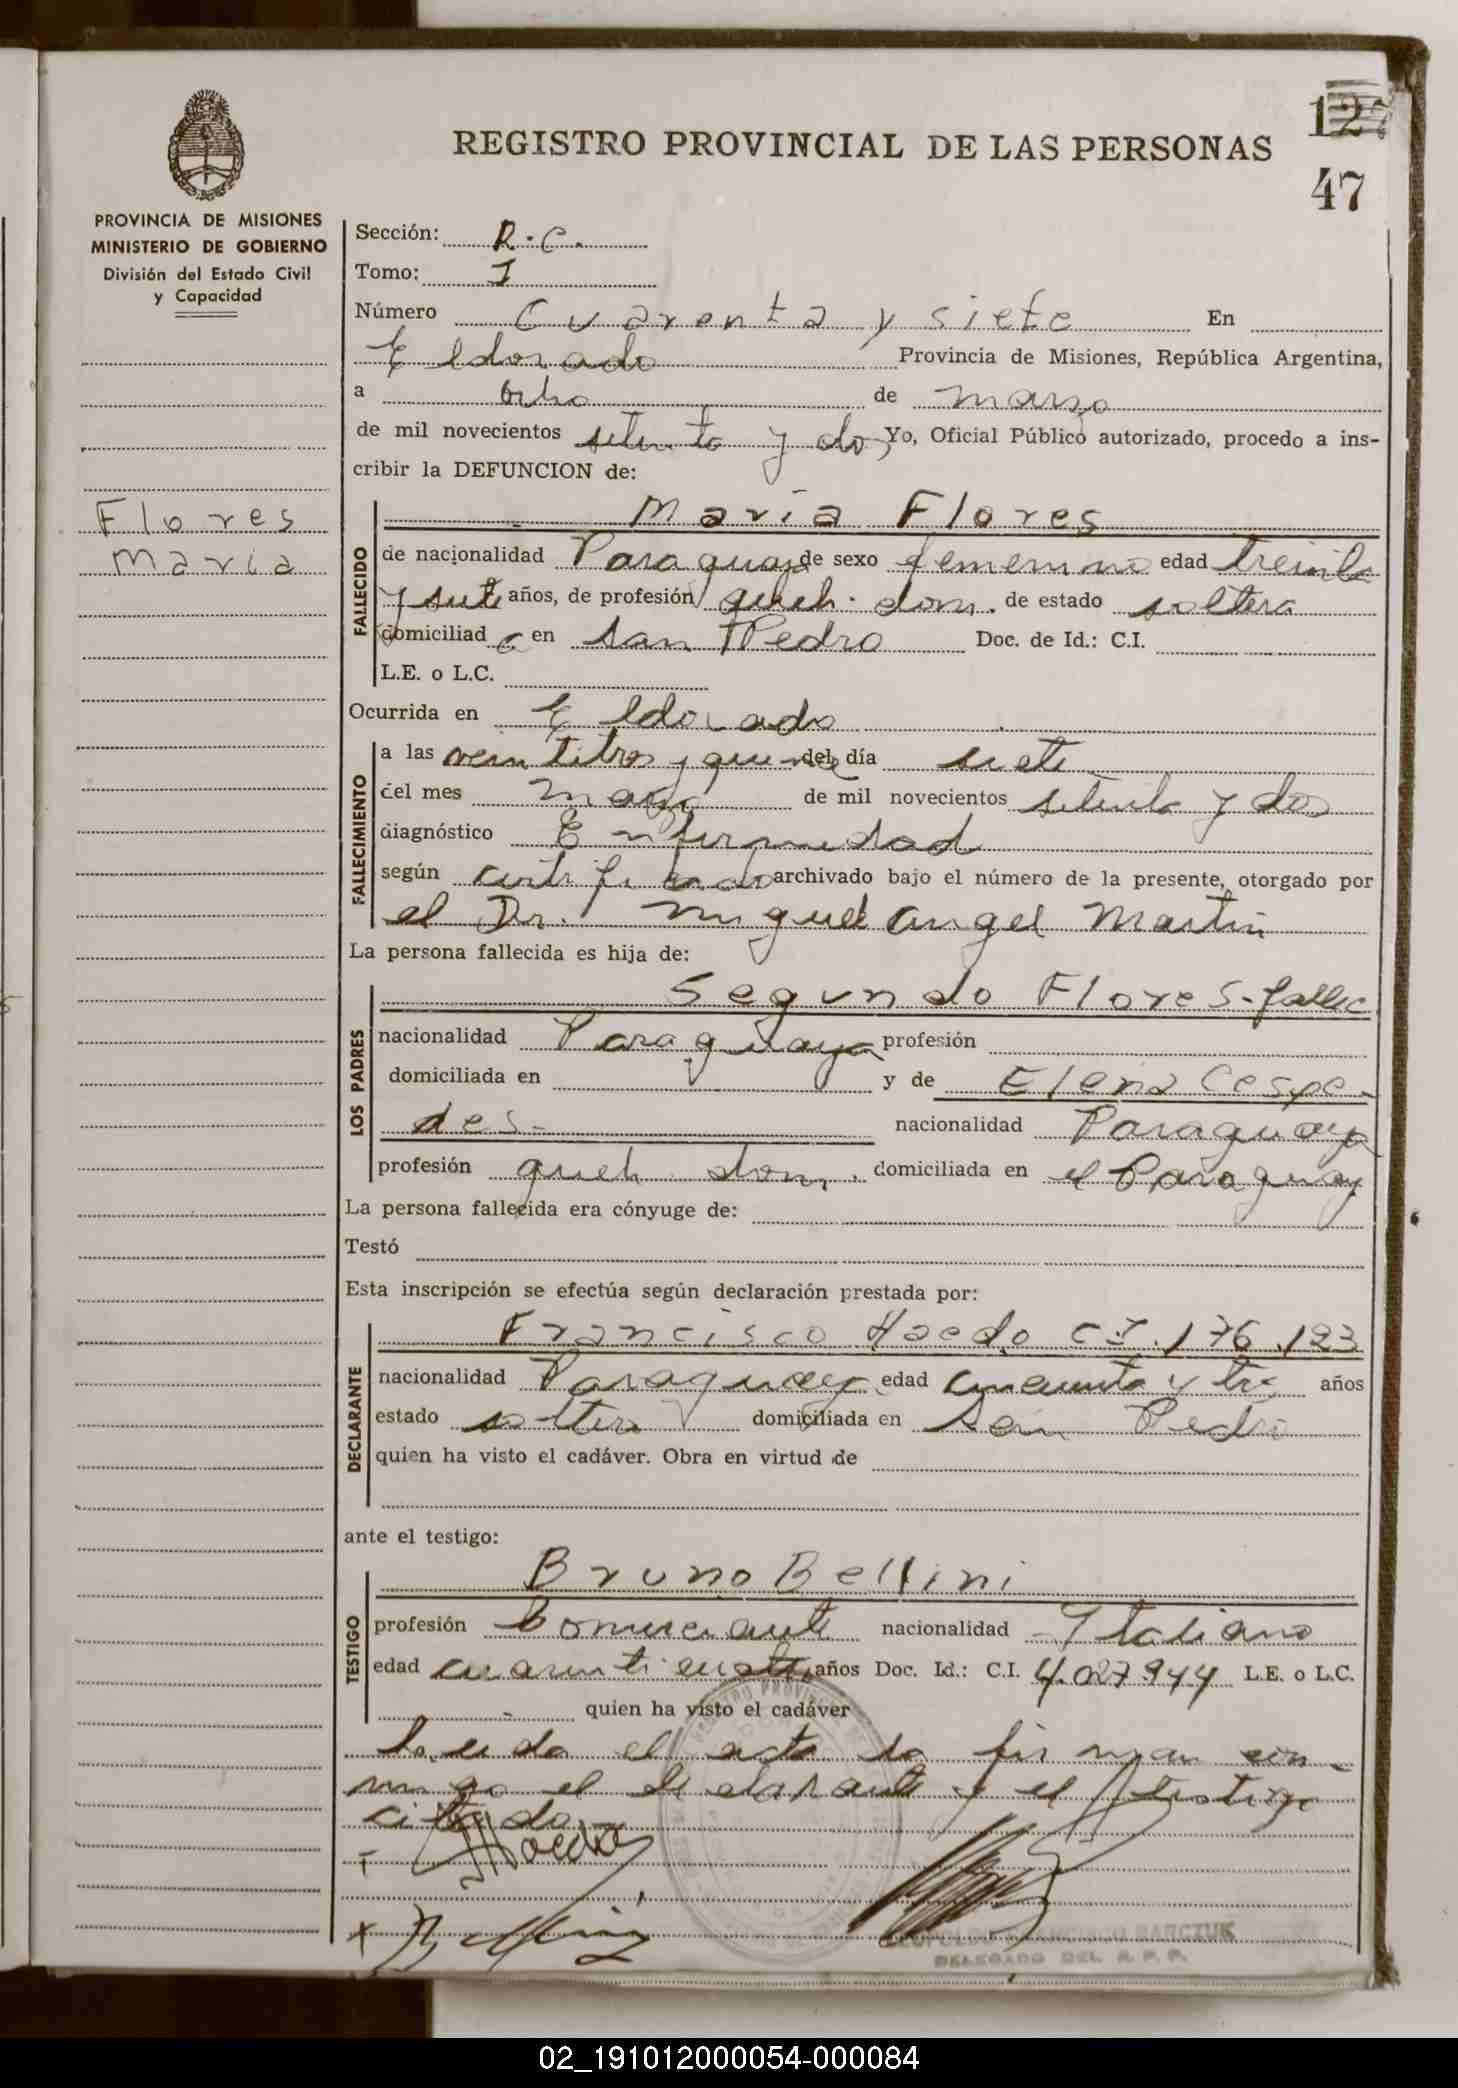 127
REGISTRO PROVINCIAL DE LAS PERSONAS
47
PROVINCIA DE MISIONES
MINISTERIO DE GOBIERNO
División del Estado Civil
y Capacidad
Flores
Maria
Sección: R.C.
Tomo: I
Número Cuarenta y siete En
Eldorado Provincia de Misiones, República Argentina,
a ocho de marzo
de mil novecientos setenta y dos Yo, Oficial Público autorizado, procedo a ins-
cribir la DEFUNCION de:
FALLECIDO
Maria Flores
de nacionalidad Paraguaya de sexo femenino edad treinta
y siete años, de profesión queh. dom. de estado soltera
domiciliad a en San Pedro Doc. de Id.: C.I.
L.E. o L.C.
Ocurrida en Eldorado
FALLECIMIENTO
a las veintitres y quince del día siete
del mes marzo de mil novecientos setenta y dos
diagnóstico Enfermedad
según certificado archivado bajo el número de la presente, otorgado por
el Dr. Miguel Angel Martin
La persona fallecida es hija de:
LOS PADRES
Segundo Flores - fallec
nacionalidad Paraguaya profesión
domiciliada en y de Elena Cespe-
des- nacionalidad Paraguaya
profesión queh dom. domiciliada en el Paraguay
La persona fallecida era cónyuge de:
Testó
Esta inscripción se efectúa según declaración prestada por:
DECLARANTE
Francisco Haedo C.I. 176.123
nacionalidad Paraguay edad cincuenta y tres años
estado soltero domiciliada en San Pedro
quien ha visto el cadáver. Obra en virtud de
ante el testigo:
TESTIGO
Bruno Bellini
profesión Comerciante nacionalidad Italiano
edad cuarenticuatro años Doc. Id.: C.I. 4.027.944 L.E. o L.C.
quien ha visto el cadáver
Leida el acta la firman con-
migo el declarante y el testigo
citado
Haedo
Bellini
LEOPOLDO FRANCISCO BARCZUK
DELEGADO DEL R. P. P.
02_191012000054-000084